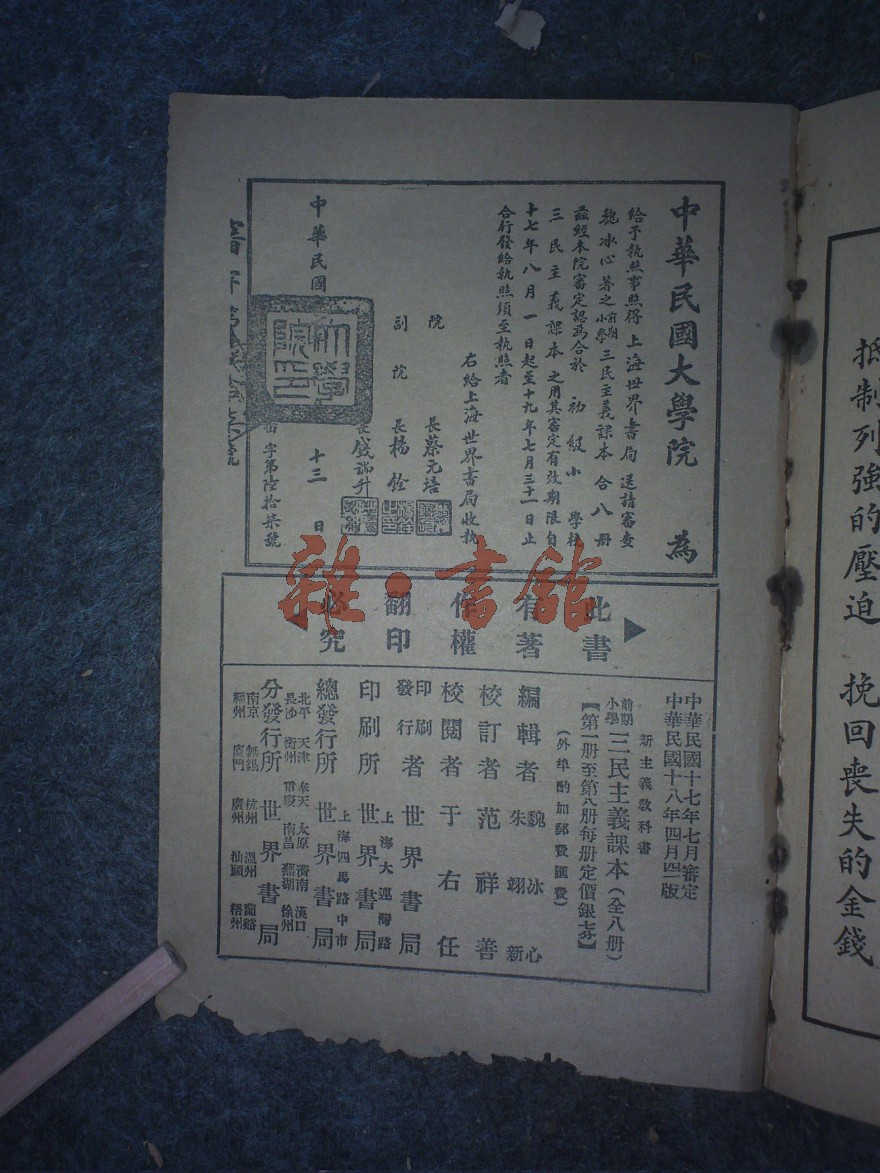 抵制列強的壓迫 挽回喪失的金錢
中華民國大學院 為
給予執照事照得上海世界書局送請審查
魏冰心著之前期小學三民主義課本合八册
茲經本院審定認為合於初級小學校
三民主義課本之用其審定有效期限自
十七年八月一日起至十九年七月三十一日止
合行發給執照須至執照者
右給上海世界書局收執
院長蔡元培
副院長楊銓
長錢端升
中華民國 十三日
字第陸拾柒號
大學院印
此書
有著
作權
翻印
必究
中華民國十七年七月審定
中華民國十八年四月四一版
新主義教科書
前期小學三民主義課本(全八册)
【第一册至第八册每册定價銀七分】
(外埠酌加郵費匯費)
編輯者 魏冰心 朱翊新
校訂者 范祥善
校閱者 于右任
印刷發行者 世界書局
印刷所 上海大連灣路 世界書局
總發行所 上海四馬路中市 世界書局
分發行所 世界書局
北平 天津 奉天 太原 濟南 漢口
長沙 衡州 重慶 南昌 蕪湖 徐州
南京 無錫 杭州 溫州 蘭谿
福州 廈門 廣州 汕頭 梧州
雜·書館